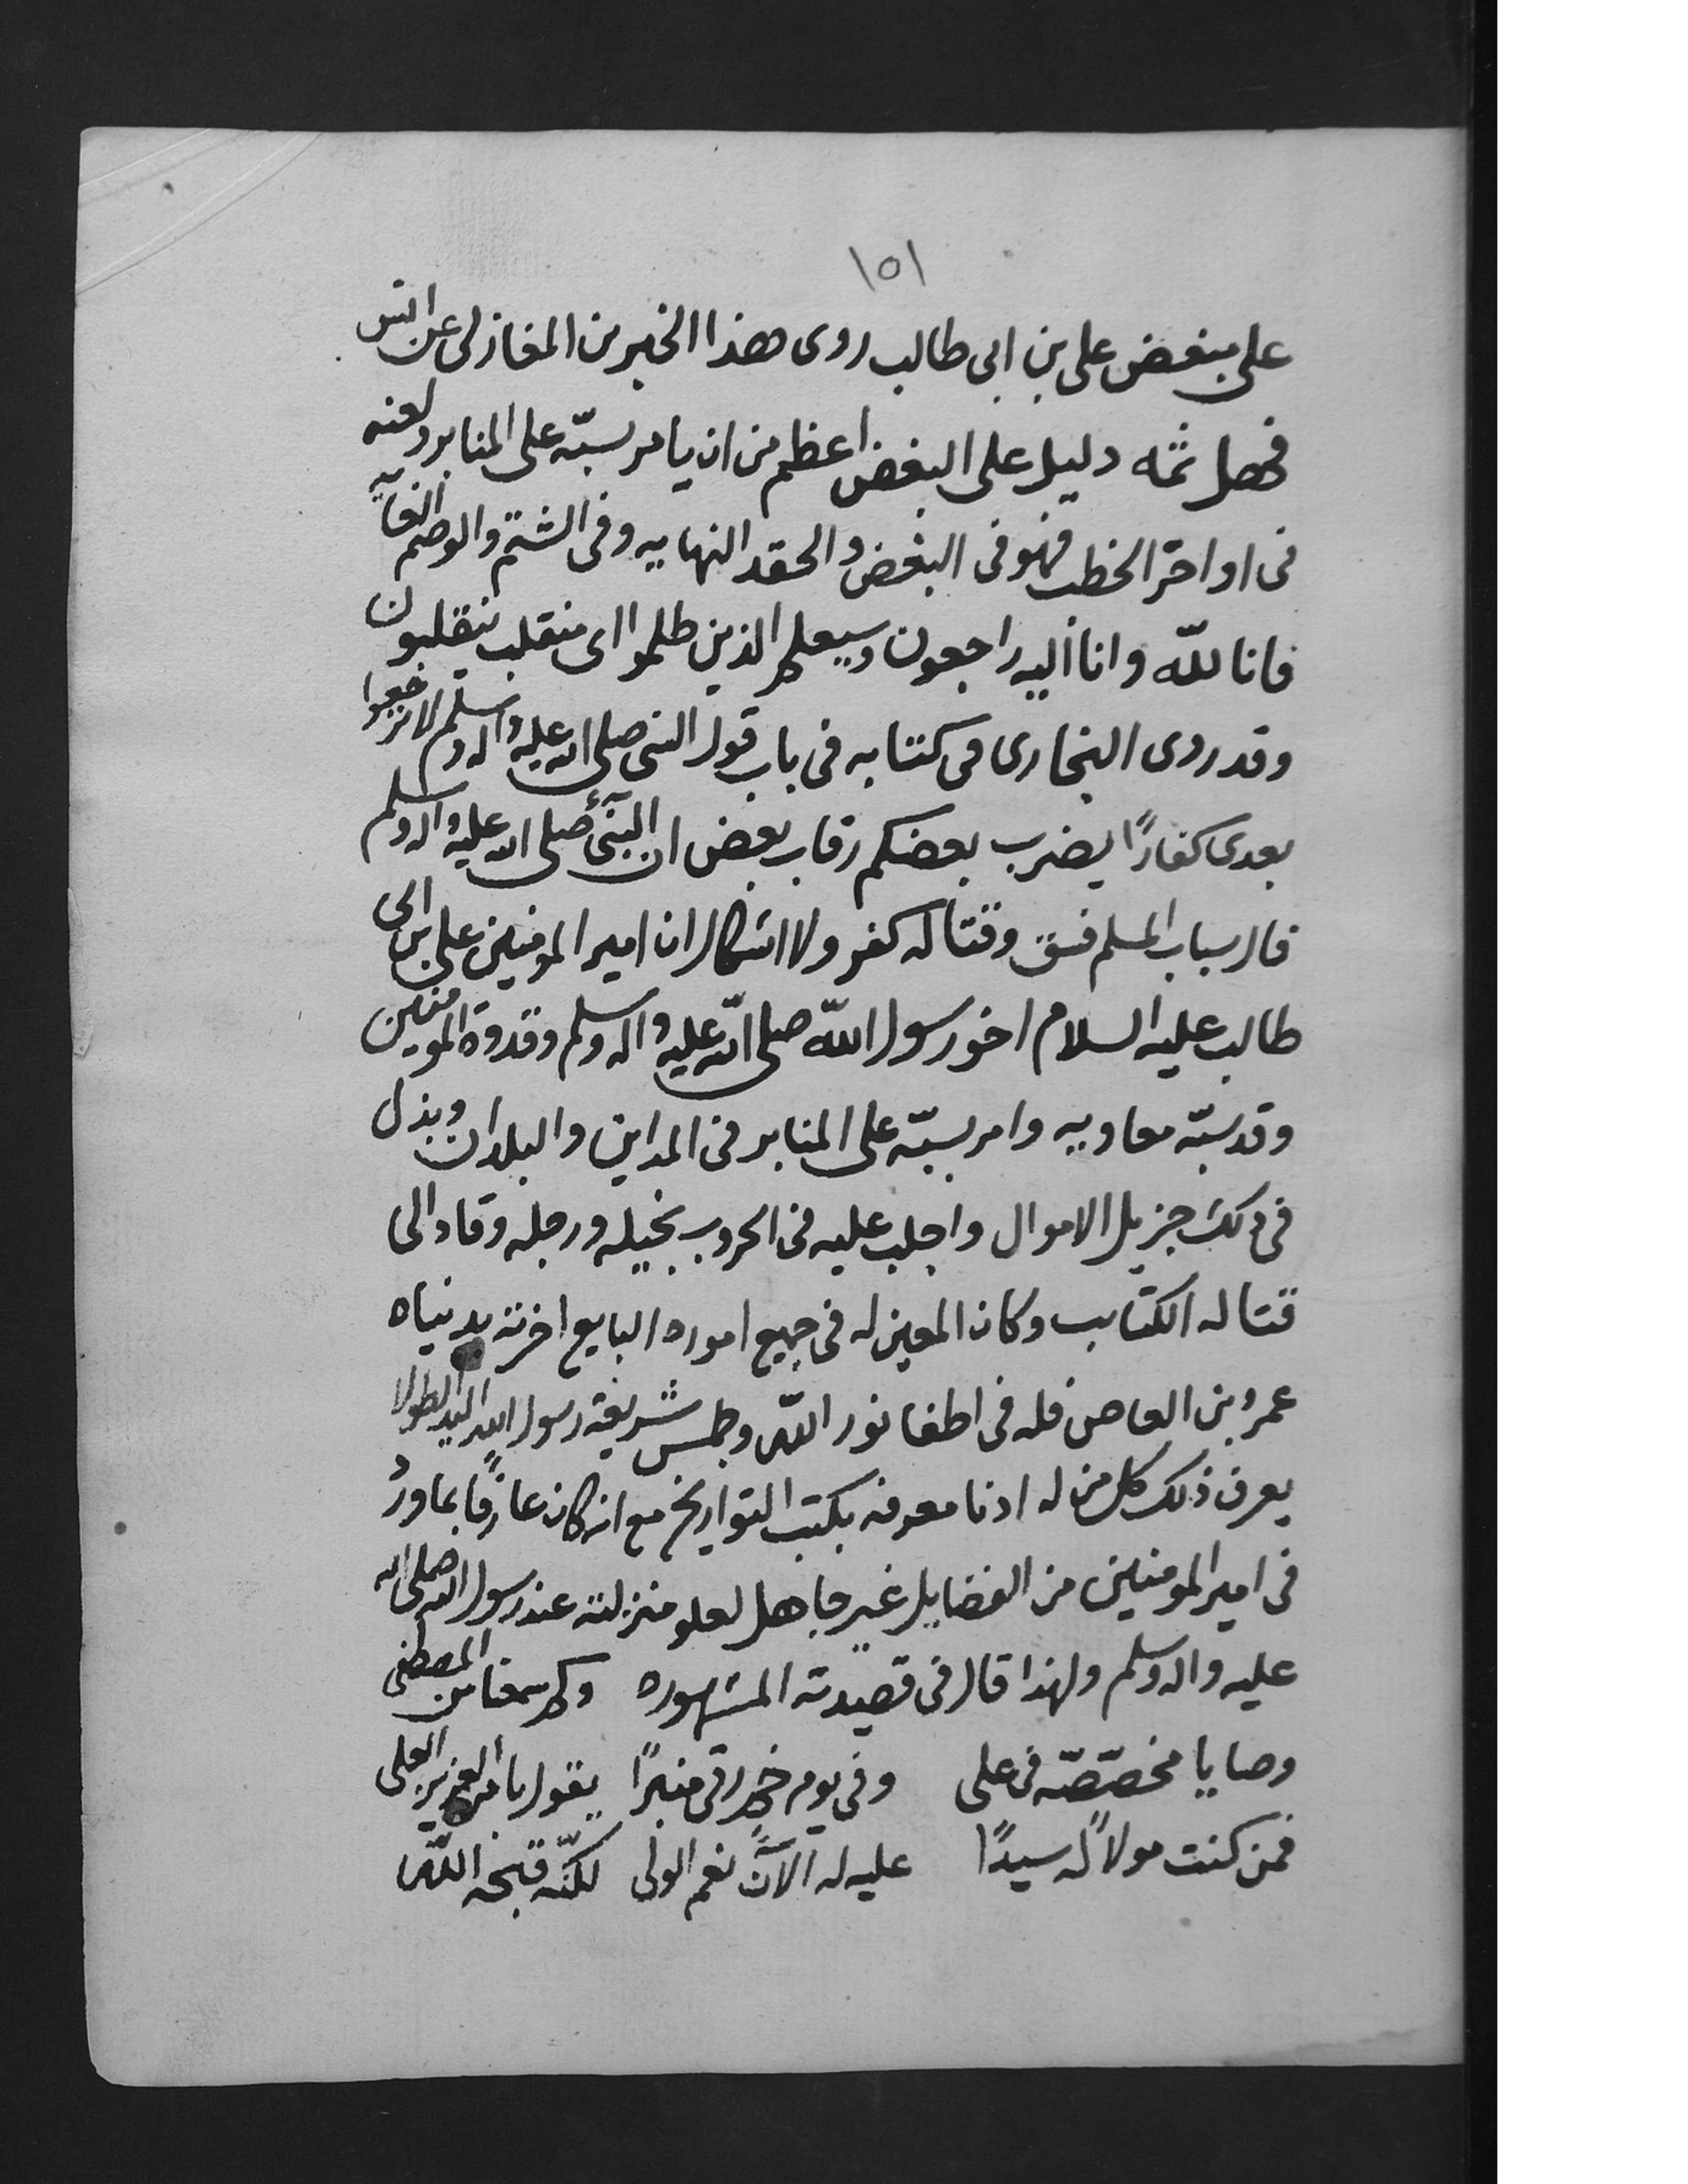 ١٥١
على مبغض على بن ابى طالب روى هذا الخبر بن المغازلى عن انس
فهل ثمه دليل على البغض اعظم من ان يامر بسبّه على المنابر ولعنه
فى اواخر الخطب فهو فى البغض والحقد النهايه وفى الشتم والوصم الغايه
فانا للّه وانا اليه راجعون وسيعلم الذين ظلموا اى منقلب ينقلبون
وقد روى البخارى فى كتابه فى باب قول النبى صلى الله عليه واله وسلم لا ترجعوا
بعدى كفارًا يضرب بعضكم رقاب بعض ان النبى صلى الله عليه واله وسلم
قال سباب المسلم فسق وقتاله كفر ولا اشكال ان امير المومنين على بن ابى
طالب عليه السلام اخو رسول اللّه صلى اللّه عليه واله وسلم وقدوة المومنين
وقد سبّه معاويه وامر بسبّه على المنابر فى المداين والبلدان وبذل
فى ذلك جزيل الاموال واجلب عليه فى الحروب بخيله ورجله وقاد الى
قتاله الكتايب وكان المعين له فى جميع اموره البايع اخرته بدنياه
عمرو بن العاص فله فى اطفا نور اللّه وطمس شريعة رسول الله اليد الطولا
يعرف ذلك كل من له ادنا معرفه بكتب التواريخ مع انه كان عارفًا بما ورد
فى امير المومنين من الفضايل غير جاهل لعلو منزلته عند رسول الله صلى الله
عليه واله وسلم ولهذا قال فى قصيدته المشهوره وكم سمعنا من المصطفى
وصايا مخصّصّه فى على وفى يوم خم رقى منبرًا يقول بامر العزيز العلى
فمن كنت مولاً له سيدًا على له الآن نعم الولى لكنّه قبحه اللّه